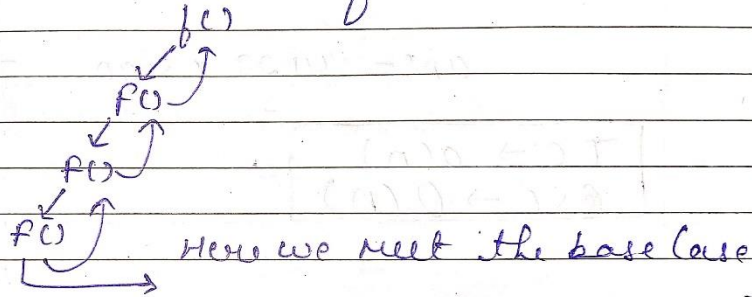 f()
f()
f()
f()
Here we meet the base Case